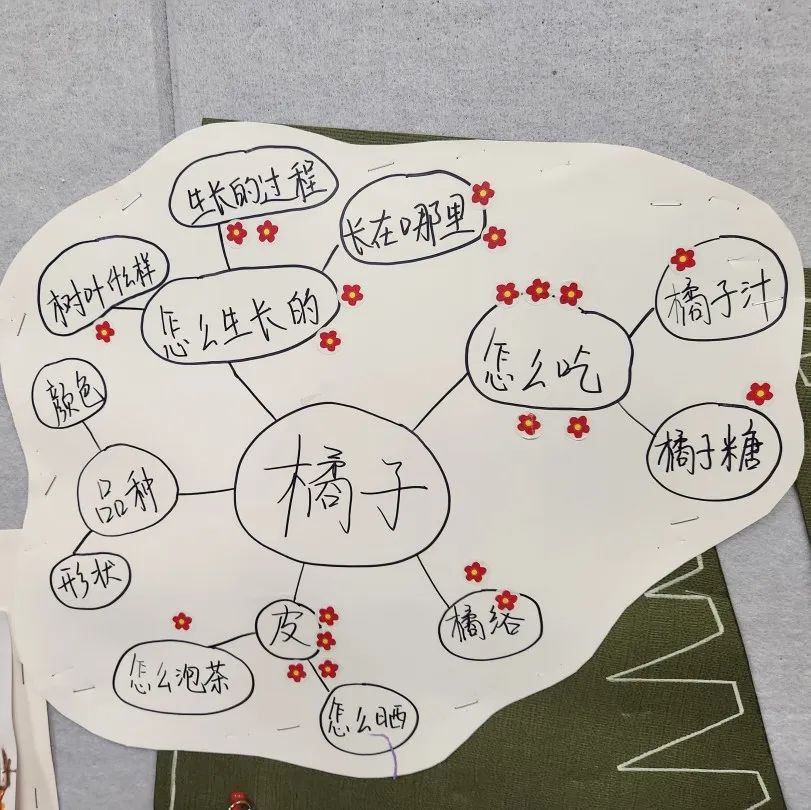 生长的过程
长在哪里
树叶什么样
怎么生长的
橘子汁
怎么吃
颜色
橘子糖
品种
橘子
形状
皮
橘络
怎么泡茶
怎么晒